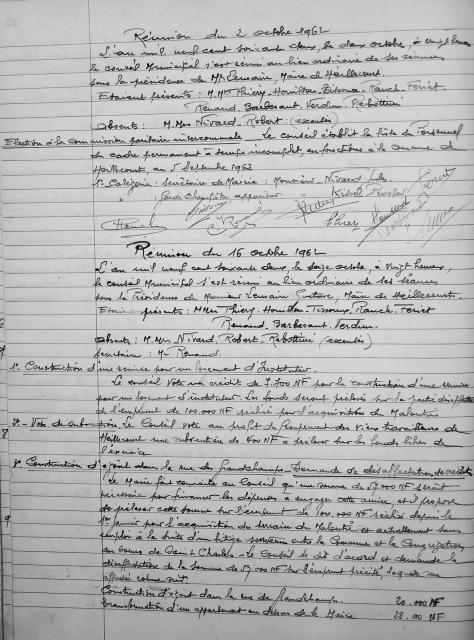 Réunion du 2 octobre 1962
L'an mil neuf cent soixante deux, le deux octobre, à vingt heures
le conseil Municipal s'est réuni au lieu ordinaire de ses séances
sous la présidence de Mr Lemaire, Maire de Heillecourt.
Etaient présents : M. Mrs Thiéry - Houillon - - Ranck - Feriet
Renaud, Barbesant. Verdun. Rebottini
Absents : M. Mrs Nivard, Robert (excusés)
Election à la commission paritaire intercommunale - Le conseil établit la liste du Personnel
du cadre permanent à temps incomplet, en fonctions à la commune de
Heillecourt, au 5 Septembre 1962
1ère Catégorie : Secrétaire de Mairie : Monsieur Nivard
" : Garde Champêtre appariteur
Réunion du 16 octobre 1962
L'an mil neuf cent soixante deux, le seize octobre, à vingt heures,
le conseil Municipal s'est réuni au lieu ordinaire de ses séances
sous la Présidence de Monsieur Lemaire Gustave, Maire de Heillecourt.
Etaient présents : M Mrs Thiéry, Houillon - - Ranck, Feriet
Renaud, Barbesant, Verdun.
Absents : M. Mrs Nivard, Robert, Rebottini (excusés)
Secrétaire : Mr Renaud.
1°- Construction d'une remise pour un logement d'Instituteur.
Le conseil vote un crédit de 7.700 NF pour la construction d'une remise
pour un logement d'instituteur. Les fonds seront prélevés sur la partie
de l'emprunt de 100.000 NF réalisé pour l'acquisition du
2°- Vote de subvention. Le Conseil vote au profit du Groupement des Vieux travailleurs de
Heillecourt une subvention de 400 NF à prélever sur les fonds libres de
l'exercice
3° Construction d'égout dans la rue des Grandchamps. Demande de désaffectation de crédits
Le Maire fait connaître au Conseil qu'une somme de 57.000 NF serait
nécessaire pour financer les dépenses à engager cette année, et il propose
de prélever cette somme sur l'emprunt de 100.000 NF réalisé depuis le
1er Janvier pour l'acquisition du terrain du et actuellement sans
emploi à la suite d'un litige survenu entre la Commune et la Congrégation
des Soeurs de Saint Charles - Le conseil se dit d'accord et demande la
désaffectation de la somme de 57.000 NF sur l'emprunt précité, laquelle sera
affectée comme suit.
Construction d'égout dans la rue de Grandchamps. 20.000 NF
transformation d'un appartement au dessus de la Mairie 28.000 NF